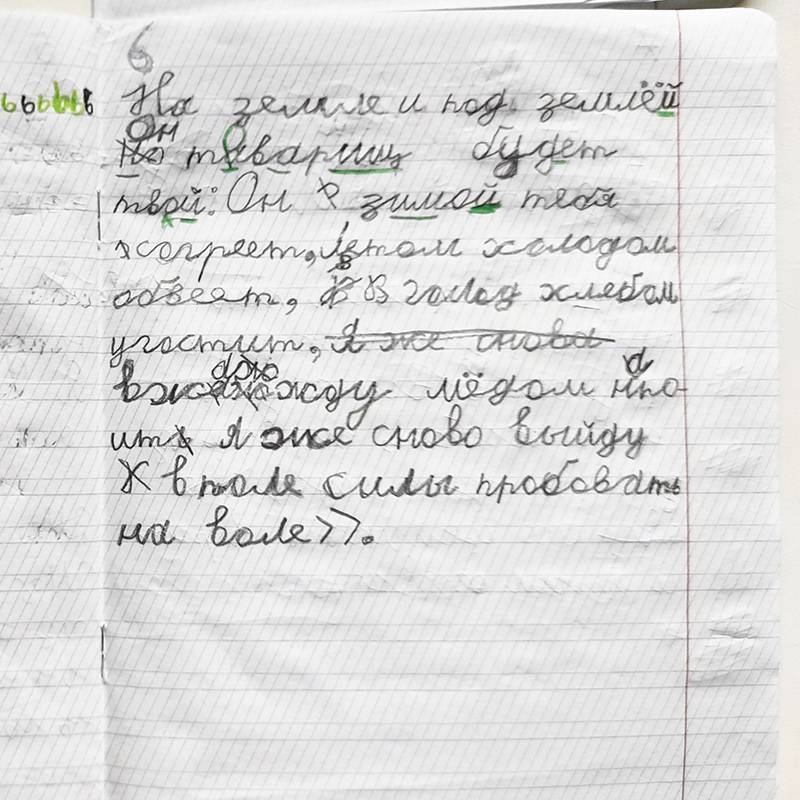 6
На земле и под землёй
Он товарищ будет
твой: Он зимой тебя
согреет, летом холодом
обвеет, В голод хлебом
угостит, я же снова
жажду мёдом напо-
ить Я же сново выйду
в поле силы пробовать
на воле>>.